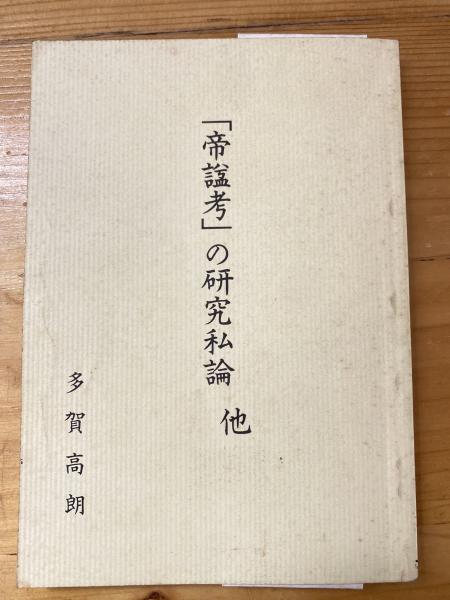 「帝諡考」の研究私論 他
多賀高朗